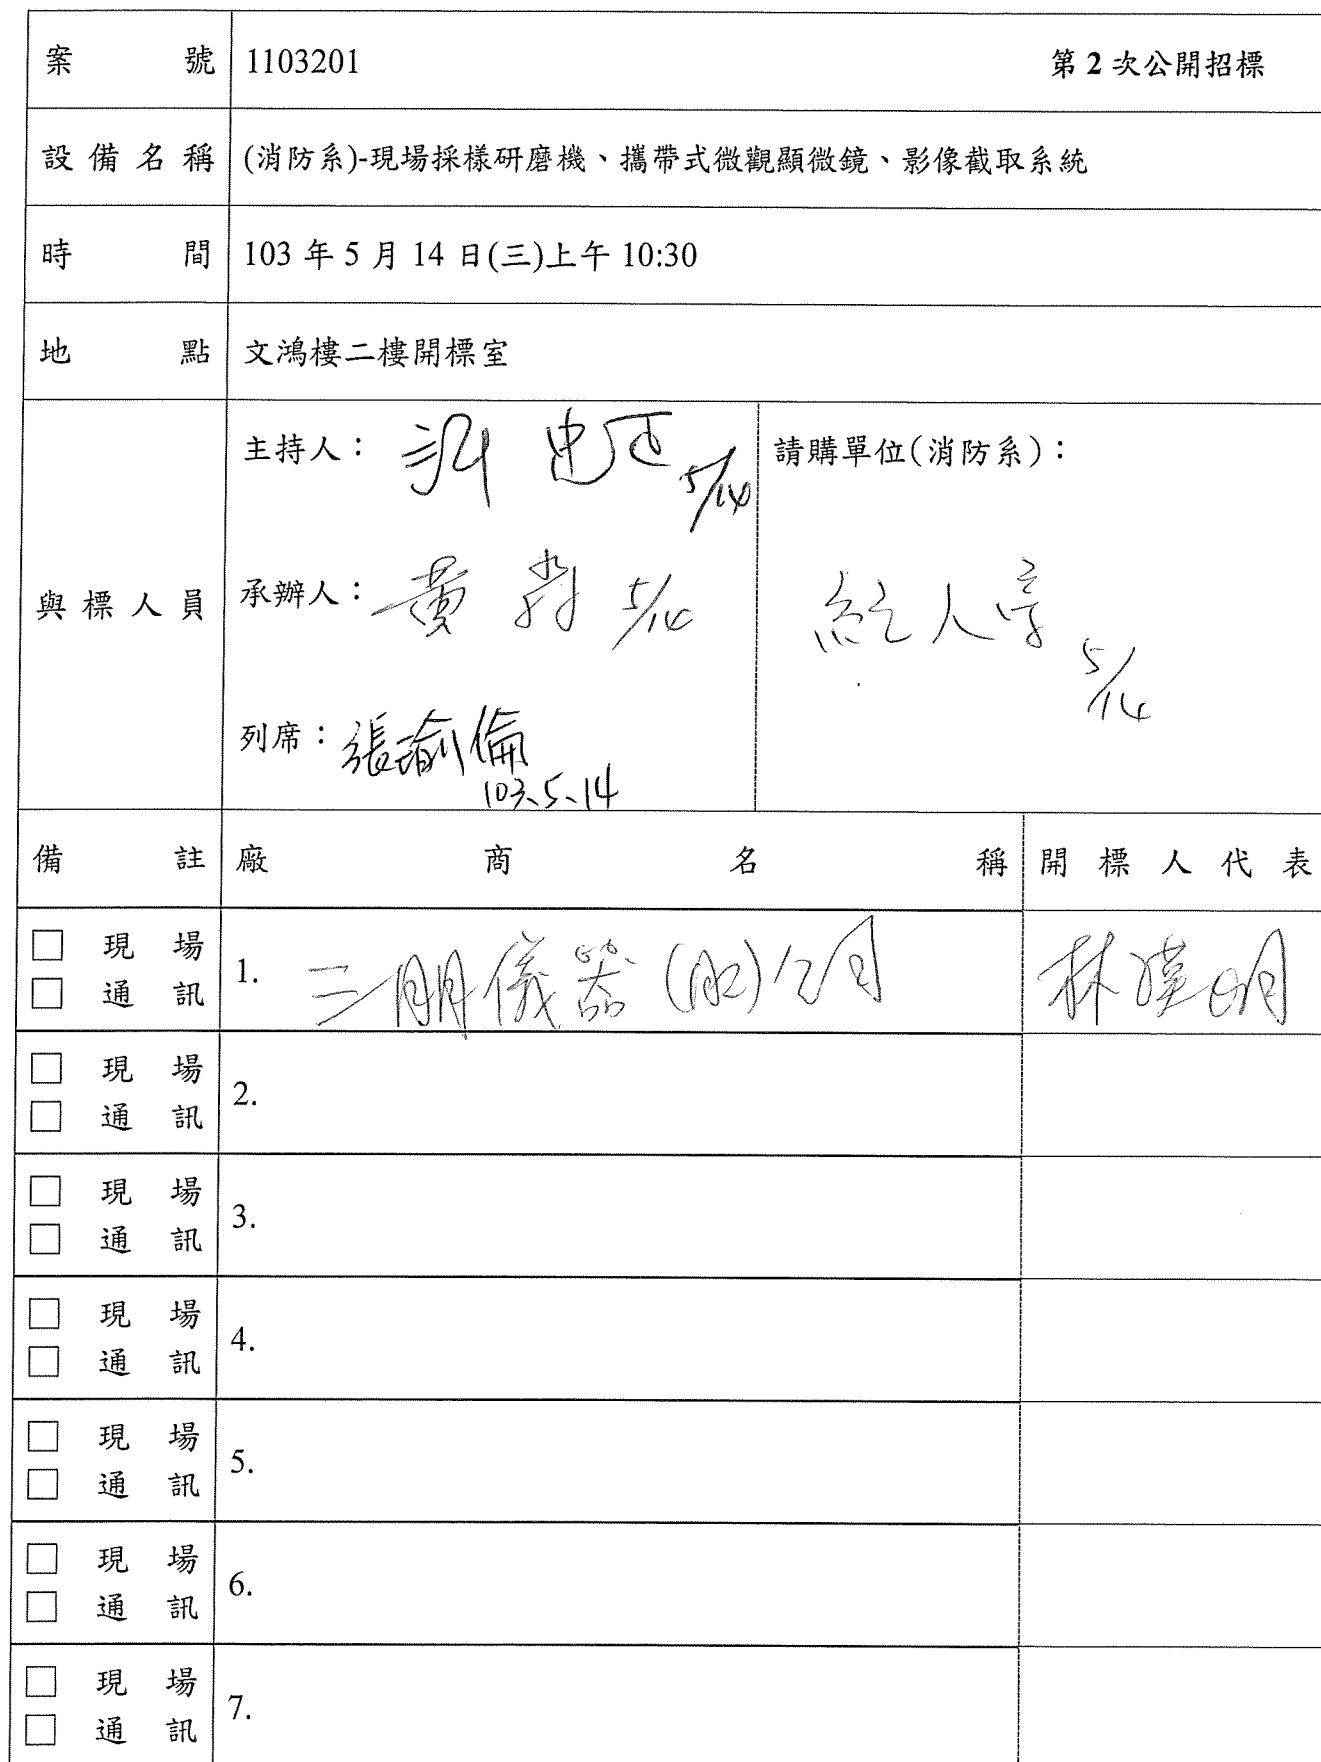 案號 1103201 第2次公開招標
設備名稱 (消防系)-現場採樣研磨機、攜帶式微觀顯微鏡、影像截取系統
時間 103年5月14日(三)上午10:30
地點 文鴻樓二樓開標室
與標人員
主持人： 5/14
請購單位(消防系)：
承辦人：黃 5/14
紀人 5/14
列席：張瑜倫
103.5.14
備註 廠商名稱 開標人代表
□ 現場
□ 通訊
1. 三朋儀器(股)公司 林漢明
□ 現場
□ 通訊
2.
□ 現場
□ 通訊
3.
□ 現場
□ 通訊
4.
□ 現場
□ 通訊
5.
□ 現場
□ 通訊
6.
□ 現場
□ 通訊
7.